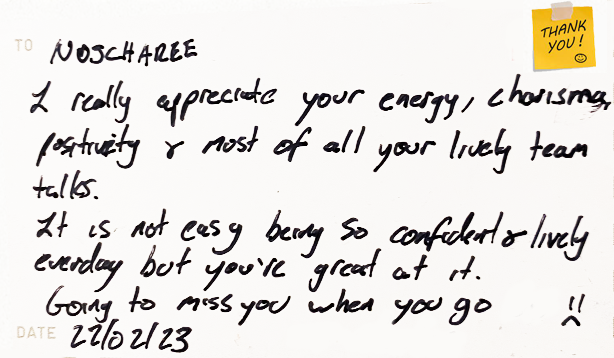 THANK
YOU!
TO NOSCHAREE
I really appreciate your energy, charisma,
positivity & most of all your lively team
talks.
It is not easy being so confident & lively
everday but you're great at it.
Going to miss you when you go
DATE 22/02/23